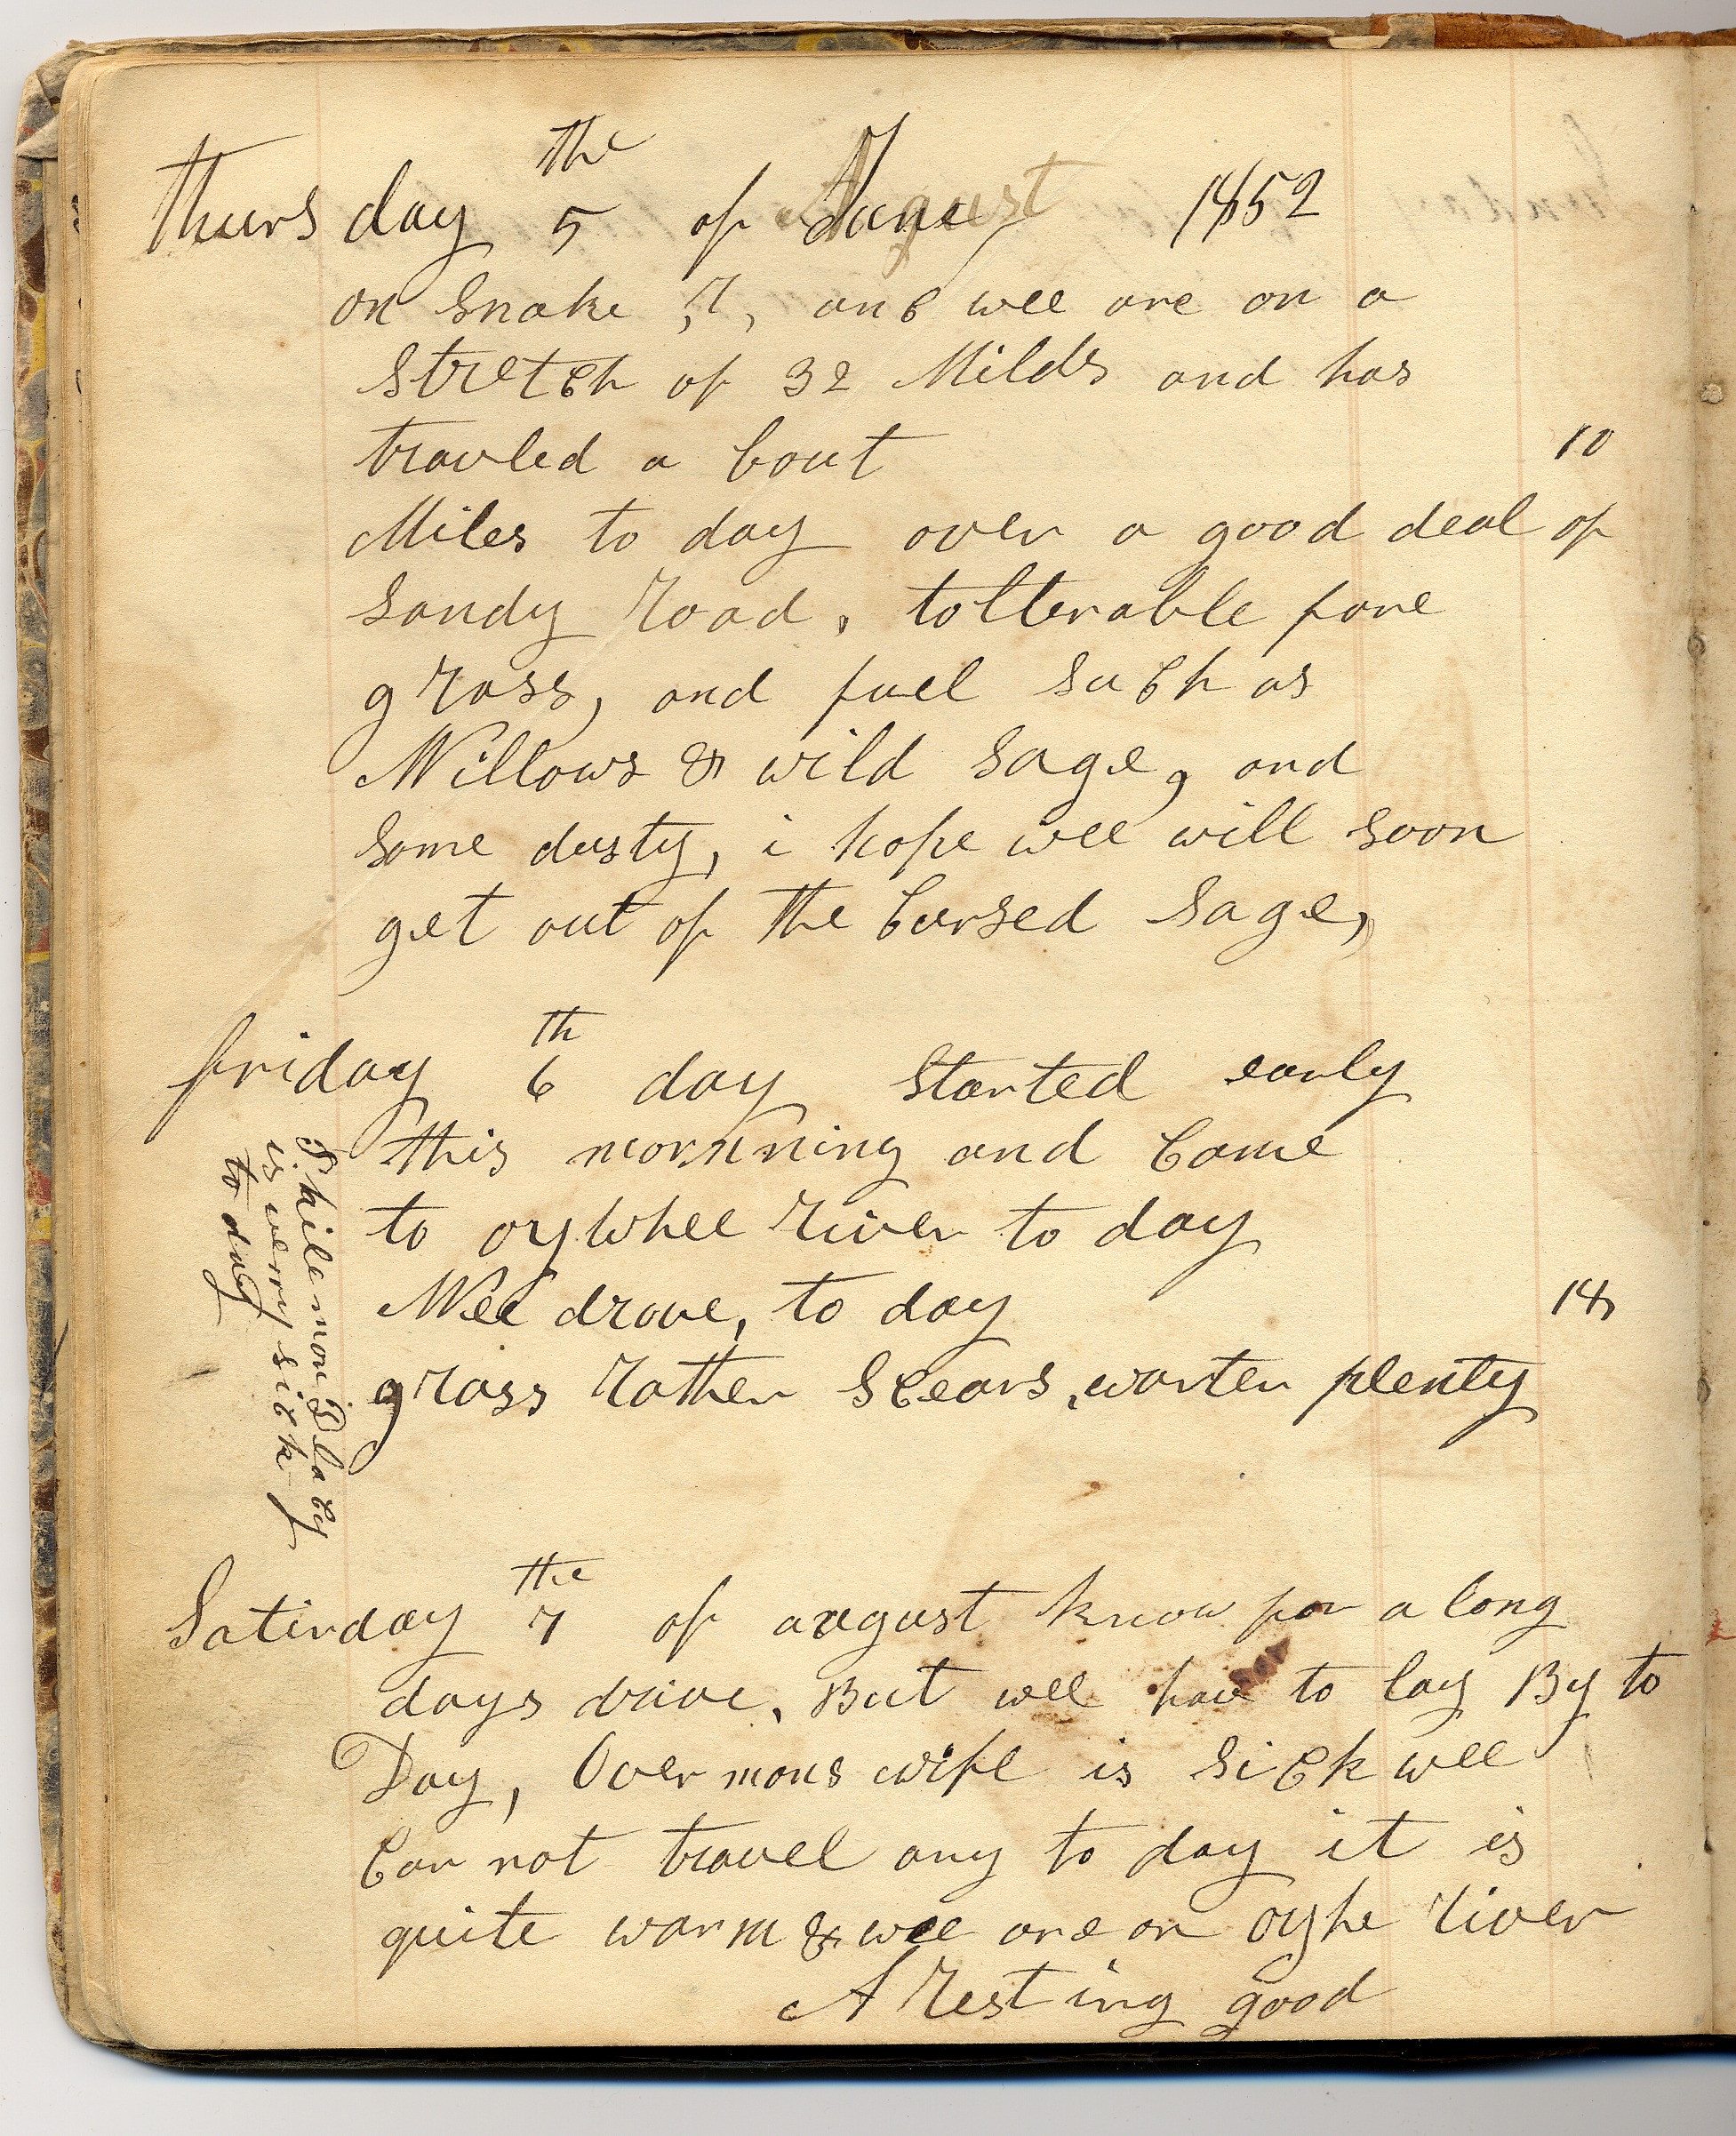 the
Thursday 5 of June August 1852
on Snake ,R, and wee are on a
Stretch of 32 Milds and has
travled a bout 10
Miles to day over a good deal of
Sandy Road, tollerable fare
grass, and fuel such as
Willows & wild Sage, and
Some dusty, i hope wee will soon
get out of the Cursed Sage,
th
friday 6 day Started early
this mornning and Came
to oy Whee River to day
Wee drove, to day 18
grass Rather Scears, warter plenty
Philemon Placy
is verry sick
to day
the
Satirday 7 of august know for a long
days drive, But wee have to lay By to
Day, Overmons wife is Sick wee
Can not travel any to day it is
quite warm & wee are on oyhe River
A Resting good